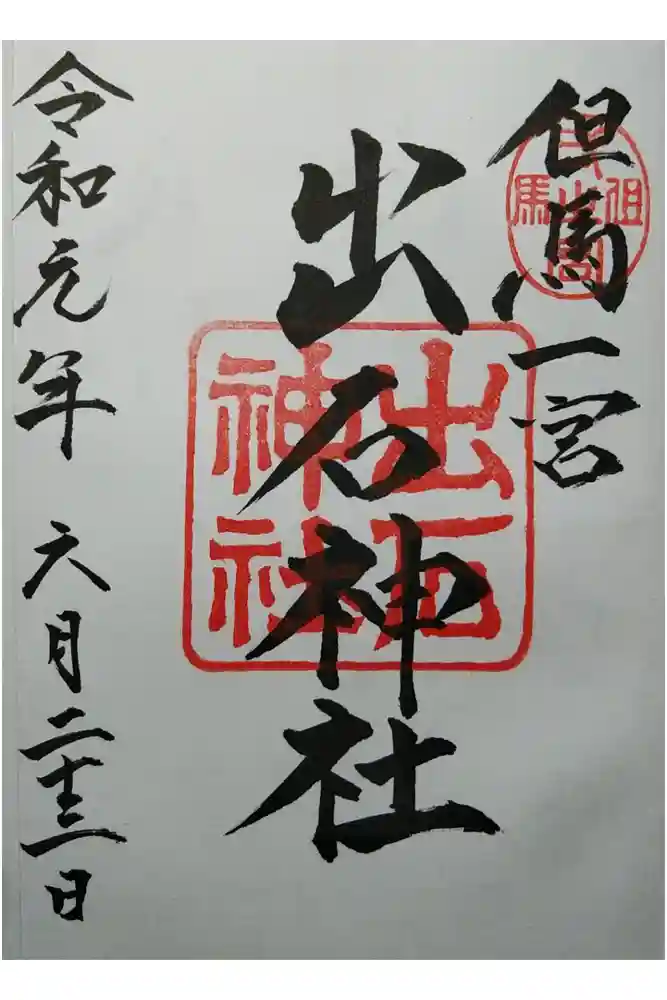 但馬一宮
但馬
出石神社
出石神社
令和元年 六月二十三日